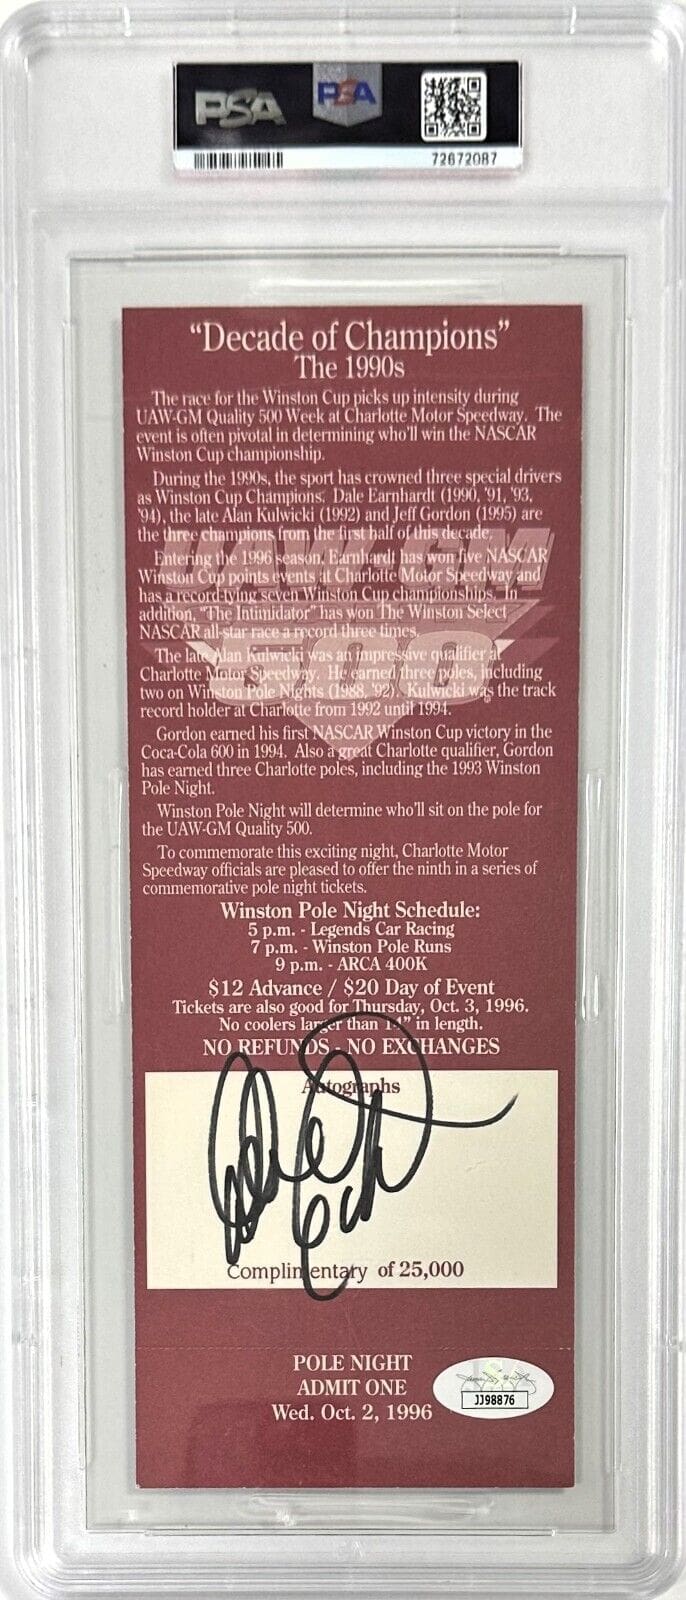 PSA
PSA
72672087
"Decade of Champions"
The 1990s
The race for the Winston Cup picks up intensity during
UAW-GM Quality 500 Week at Charlotte Motor Speedway. The
event is often pivotal in determining who'll win the NASCAR
Winston Cup championship.
During the 1990s, the sport has crowned three special drivers
as Winston Cup Champions. Dale Earnhardt (1990, '91, '93,
'94), the late Alan Kulwicki (1992) and Jeff Gordon (1995) are
the three champions from the first half of this decade.
Entering the 1996 season, Earnhardt has won five NASCAR
Winston Cup points events at Charlotte Motor Speedway and
has a record-tying seven Winston Cup championships. In
addition, "The Intimidator" has won The Winston Select
NASCAR all-star race a record three times.
The late Alan Kulwicki was an impressive qualifier at
Charlotte Motor Speedway. He earned three poles, including
two on Winston Pole Nights (1988, '92). Kulwicki was the track
record holder at Charlotte from 1992 until 1994.
Gordon earned his first NASCAR Winston Cup victory in the
Coca-Cola 600 in 1994. Also a great Charlotte qualifier, Gordon
has earned three Charlotte poles, including the 1993 Winston
Pole Night.
Winston Pole Night will determine who'll sit on the pole for
the UAW-GM Quality 500.
To commemorate this exciting night, Charlotte Motor
Speedway officials are pleased to offer the ninth in a series of
commemorative pole night tickets.
UAW-GM
500
Winston Pole Night Schedule:
5 p.m. - Legends Car Racing
7 p.m. - Winston Pole Runs
9 p.m. - ARCA 400K
$12 Advance / $20 Day of Event
Tickets are also good for Thursday, Oct. 3, 1996.
No coolers larger than 14" in length.
NO REFUNDS - NO EXCHANGES
Autographs
Complimentary of 25,000
POLE NIGHT
ADMIT ONE
Wed. Oct. 2, 1996
JSA
JJ98876